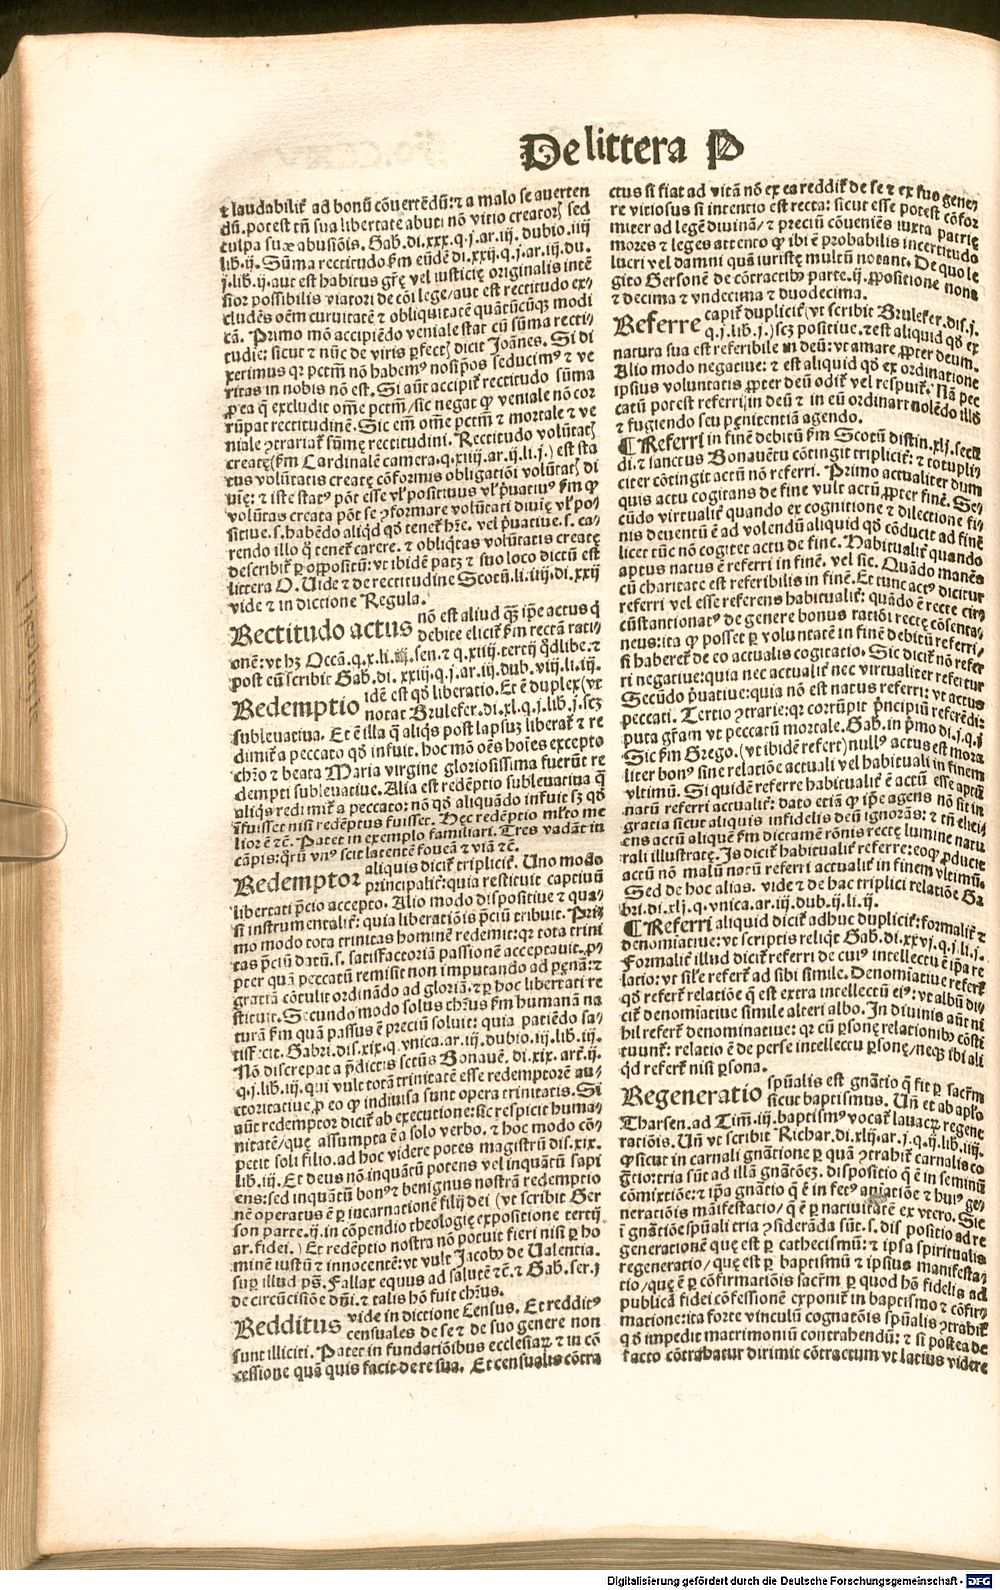 De littera P
⁊ laudabilit̃ ad bonũ cõuertẽdũ: ⁊ a malo se auerten
dũ. potest tñ sua libertate abuti nõ vitio creatorꝭ sed
culpa suæ abusiõis. Gab. di. xxx. q. j. ar. iij. dubio. iiij
lib. ij. Sũma rectitudo ẜm eũdẽ di. xxij. q. j. ar. iij. du.
j. lib. ij. aut est habitus gr̃ę vel iusticię originalis intẽ
sior possibilis viatori de cõi lege/aut est rectitudo ex⸗
cludẽs oẽm curuitatẽ ⁊ obliquitatẽ quãtũcũqꝫ modi
cã. Primo mõ accipiẽdo veniale stat cũ sũma recti⸗
tudie: sicut ⁊ nũc de viris ꝑfectꝭ dicit Joãnes. Si di
xerimus qꝛ pctm̃ nõ habemꝰ nosip̃os seducimꝰ ⁊ ve
ritas in nobis nõ est. Si aũt accipit̃ rectitudo sũma
ꝓ ea q̃ excludit om̃e pctm̃/sic negat̃ ꝙ veniale nõ cor
rũpat rectitudinẽ. Sic em̃ om̃e pctm̃ ⁊ mortale ⁊ ve
niale ꝯtrariat̃ sũmę rectitudini. Rectitudo volũtatꝭ
creatę (ẜm Cardinalẽ camera. q. xiiij. ar. ij. li. j.) est sta
tus volũtatis creatę cõformis obligatiõi volũtatꝭ di
uię: ⁊ iste statꝰ põt esse vl̃ positiuus vl̃ p̃uatiuꝰ ẜm ꝙ
volũtas creata põt se ꝯformare volũtati diuię vl̃ po⸗
sitiue. s. habẽdo aliq̃d qd̃ tenet̃ hr̃e. vel p̃uatiue. s. ca⸗
rendo illo q̃ tenet̃ carere. ⁊ obliq̃tas volũtatis creatę
describit̃ ꝑ oppositũ: vt ibidẽ patꝫ ⁊ suo loco dictũ est
littera O. Uide ⁊ de rectitudine Scotũ. li. iiij. di. xxij
vide ⁊ in dictione Regula.
Rectitudo actus nõ est aliud qꝫ ip̃e actus q̃
debite elicit̃ ẜm rectã rati⸗
onẽ: vt hꝫ Occã. q. x. li. iij. sen. ⁊ q. xiiij. tertij q̃dlibe. ⁊
post eũ scribit Gab. di. xxiij. q. j. ar. iij. dub. viij. li. iij.
Redemptio idẽ est qd̃ liberatio. Et ẽ duplex (vt
notat Brulefer. di. xl. q. j. lib. j. scꝫ
subleuatiua. Et ẽ illa q̃ aliq̃s post lapsuꝫ liberat̃ ⁊ re
dimit̃ a peccato qd̃ infuit. hoc mõ oẽs hoĩes excepto
chr̃o ⁊ beata Maria virgine gloriosissima fuerũt re
dempti subleuatiue. Alia est redẽptio subleuatiua q̃
aliq̃s redimit̃ a peccato: nõ qd̃ aliquãdo infuit sꝫ qd̃
ĩfuisset nisi redẽptus fuisset. Hęc redẽptio ml̃to me
lior ẽ ⁊c̃. Patet in exemplo familiari. Tres vadãt in
cãpis: qrũ vnꝰ scit latentẽ foueã ⁊ viã ⁊c̃.
Redemptor aliquis dicit̃ triplicit̃. Uno modo
principalit̃: quia restituit captiuũ
libertati p̃cio accepto. Alio modo dispositiue ⁊ qua⸗
si instrumentalit̃: quia liberatiõis p̃ciũ tribuit. Pri⸗
mo modo tota trinitas hominẽ redemit: qꝛ tota trini
tas p̃ciũ datũ. s. satisfactoriã passionẽ acceptauit. ꝓ⸗
pter quã peccatũ remisit non imputando ad pęnã: ⁊
gratiã cõtulit ordinãdo ad gloriã. ⁊ ꝑ hoc libertati re
stituit. Secundo modo solus chr̃us ẜm humanã na
turã ẜm quã passus ẽ preciũ soluit: quia patiẽdo sa⸗
tisfecit. Gabri. dis. xix. q. vnica. ar. iij. dubio. iij. lib. iij.
Nõ discrepat a p̃dictis sctũs Bonauẽ. di. xix. art̃. ij.
q. j. lib. iij. qui vult totã trinitatẽ esse redemptorẽ au⸗
ctoritatiue ꝓ eo ꝙ indiuisa sunt opera trinitatis. Si
aũt redemptor dicit̃ ab executione: sic respicit huma⸗
nitatẽ/quę assumpta ẽ a solo verbo. ⁊ hoc modo cõ⸗
petit soli filio. ad hoc videre potes magistrũ dis. xix.
lib. iij. Et deus nõ inquãtũ potens vel inquãtũ sapi
ens: sed inquãtũ bonꝰ ⁊ benignus nostrã redemptio
nẽ operatus ẽ ꝑ incarnationẽ filij dei (vt scribit Ger
son parte. ij. in cõpendio theologię expositione tertij
ar. fidei.) Et redẽptio nostra nõ potuit fieri nisi ꝑ ho
minẽ iustũ ⁊ innocentẽ: vt vult Jacobꝰ de Ualentia.
suꝑ illud ps̃. Fallax equus ad salutẽ ⁊c̃. ⁊ Gab. ser. j
de circũcisiõe dñi. ⁊ talis hõ fuit chr̃us.
Redditus vide in dictione Census. Et redditꝰ
censuales de se ⁊ de suo genere non
sunt illiciti. Patet in fundatiõibus ecclesiaꝝ ⁊ in cõ
cessione quã quis facit de re sua. Et censualis cõtra
ctus si fiat ad vitã nõ ex ea reddit̃ de se ⁊ ex suo gene⸗
re vitiosus si intentio est recta: sicut esse potest cõfor
miter ad legẽ diuinã/ ⁊ preciũ cõueniẽs iuxta patrię
mores ⁊ leges attento ꝙ ibi ẽ probabilis incertitudo
lucri vel damni quã iuristę multũ notant. De quo le
gito Gersonẽ de cõtractibꝰ parte. ij. ꝓpositione nona
⁊ decima ⁊ vndecima ⁊ duodecima.
Referre capit̃ duplicit̃ (vt scribit Brulefer. dis. j.
q. j. lib. j.) scꝫ positiue. ⁊ est aliquid qd̃ ex
natura sua est referibile in deũ: vt amare ꝓpter deum.
Alio modo negatiue: ⁊ est aliquid qd̃ ex ordinatione
ipsius voluntatis ꝓpter deũ odit̃ vel respuit̃. Nã pec
catũ potest referri in deũ ⁊ in eũ ordinari nolẽdo illd̃
⁊ fugiendo seu pęnitentiã agendo.
¶ Referri in finẽ debitũ ẜm Scotũ distin. xlj. secũ
di. ⁊ sanctus Bonauẽtu cõtingit triplicit̃: ⁊ totupli⸗
citer cõtingit actũ nõ referri. Primo actualiter dum
quis actu cogitans de fine vult actũ ꝓpter finẽ. Se⸗
cũdo virtualit̃ quando ex cognitione ⁊ dilectione fi⸗
nis deuentũ ẽ ad volendũ aliquid qd̃ cõducit ad finẽ
licet tũc nõ cogitet actu de fine. Habitualit̃ quando
aptus natus ẽ referri in finẽ. vel sic. Quãdo manẽs
cũ charitate est referibilis in finẽ. Et tunc actꝰ dicitur
referri vel esse referens habitualit̃: quãdo ẽ recte cir⸗
cũstantionatꝰ de genere bonus ratiõi rectę cõsenta⸗
neus: ita ꝙ posset ꝑ voluntatẽ in finẽ debitũ referri/
si haberet̃ de eo actualis cogitatio. Sic dicit̃ nõ refer
ri negatiue: quia nec actualit̃ nec virtualiter refertur
Secũdo p̃uatiue: quia nõ est natus referri: vt actus
peccati. Tertio ꝯtrarie: qꝛ corrũpit p̃ncipiũ referẽdi:
puta gr̃am vt peccatũ mortale. Gab. in p̃mo di. j. q. j
Sic ẜm Grego. (vt ibidẽ refert) nullꝰ actus est mora
liter bonꝰ sine relatiõe actuali vel habituali in finem
vltimũ. Si quidẽ referre habitualit̃ ẽ actũ esse aptũ
natũ referri actualit̃: dato etiã ꝙ ip̃e agens nõ sit in
gratia sicut aliquis infidelis deũ ignorãs: ⁊ tñ elici⸗
ens actũ aliquẽ ẜm dictamẽ rõnis rectę lumine natu
rali illustratę. Is dicit̃ habitualit̃ referre: eoqꝫ ꝓducit
actũ nõ malũ natũ referri actualit̃ in finem vltimũ.
Sed de hoc alias. vide ⁊ de hac triplici relatiõe Ga
bri. di. xlj. q. vnica. ar. iij. dub. ij. li. ij.
¶ Referri aliquid dicit̃ adhuc duplicit̃: formalit̃ ⁊
denomiatiue: vt scriptis reliq̃t Gab. di. xxvj. q. j. li. j.
Formalit̃ illud dicit̃ referri de cuiꝰ intellectu ẽ ip̃a re
latio: vt sil̃e refert̃ ad sibi simile. Denomiatiue refert̃
qd̃ refert̃ relatiõe q̃ est extra intellectũ eiꝰ: vt albũ di⸗
cit̃ denomiatiue simile alteri albo. In diuinis aũt ni
hil refert̃ denominatiue: qꝛ cũ ꝑsonę relationibꝰ cõsti
tuunt̃: relatio ẽ de perse intellectu ꝑsonę/neqꝫ ibi ali
qd̃ refert̃ nisi ꝑsona.
Regeneratio sp̃ualis est gñatio q̃ fit ꝑ sacr̃m
sicut baptismus. Uñ et ab ap̃lo
Tharsen. ad Tim̃. iij. baptismꝰ vocat̃ lauacꝝ regene
ratiõis. Uñ vt scribit Richar. di. xlij. ar. j. q. ij. lib. iiij.
ꝙ sicut in carnali gñatione ꝑ quã ꝯtrahit̃ carnalis co
gr̃tio: tria sũt ad illã gñatõeꝫ. dispositio q̃ ẽ in seminũ
cõmixtiõe: ⁊ ip̃a gñatio q̃ ẽ in fetꝰ aniatiõe ⁊ huiꝰ ge⸗
neratiõis mãifestatio/ q̃ ẽ ꝑ natiuitatẽ ex vtero. Sic
ĩ gñatiõe sp̃uali tria ꝯsiderãda sũt. s. dispositio ad re
generationẽ quę est ꝑ cathecismũ: ⁊ ipsa spiritualis
regeneratio/ quę est ꝑ baptismũ ⁊ ipsius manifesta⸗
tio/quę ẽ ꝑ cõfirmatiõis sacr̃m ꝑ quod hõ fidelis ad
publicã fidei cõfessionẽ exponit̃ in baptismo ⁊ cõfir⸗
matione: ita forte vinculũ cognatiõis sp̃ualis ꝯtrahit̃
qd̃ impedit matrimoniũ contrahendũ: ⁊ si postea de
facto cõtrahatur dirimit cõtractum vt latius videre
Digitalisierung gefördert durch die Deutsche Forschungsgemeinschaft - DFG